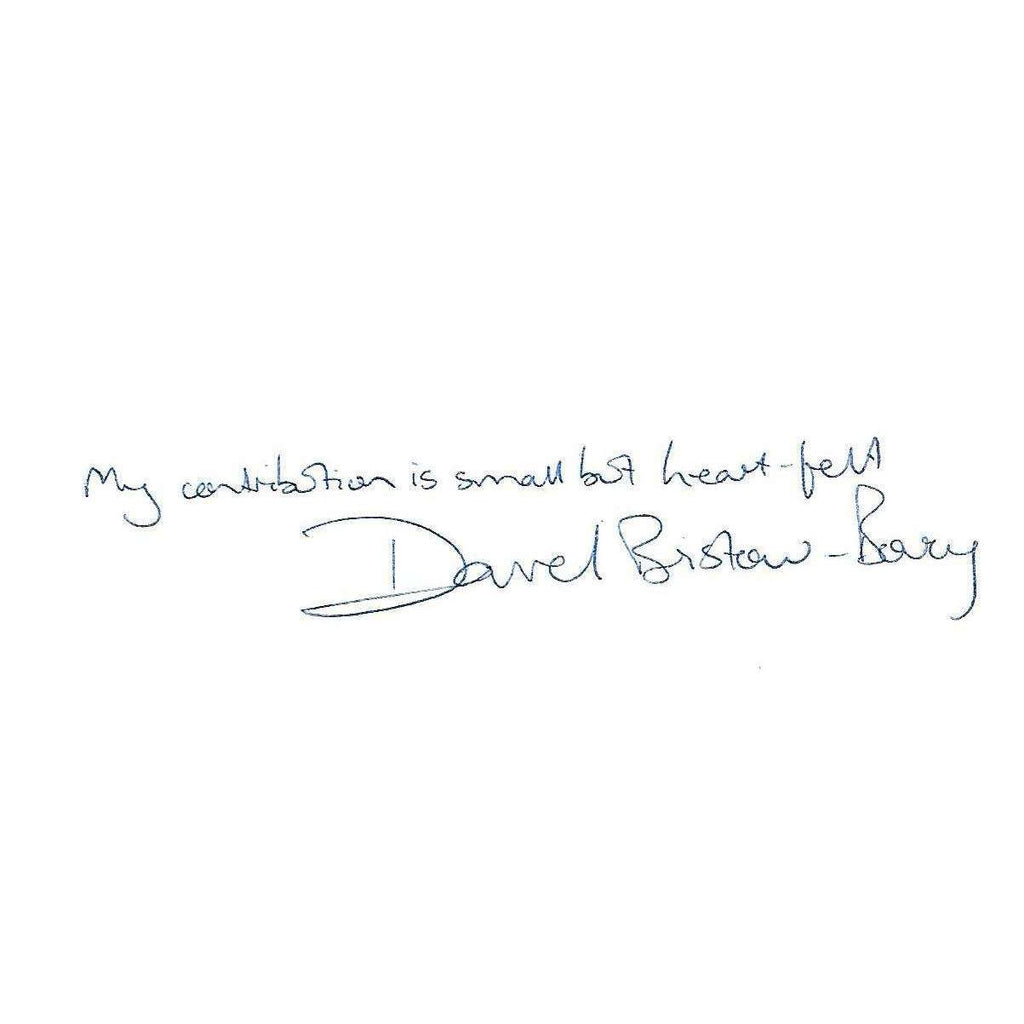 My contribution is small but heart-felt
David Bristow-Bovey